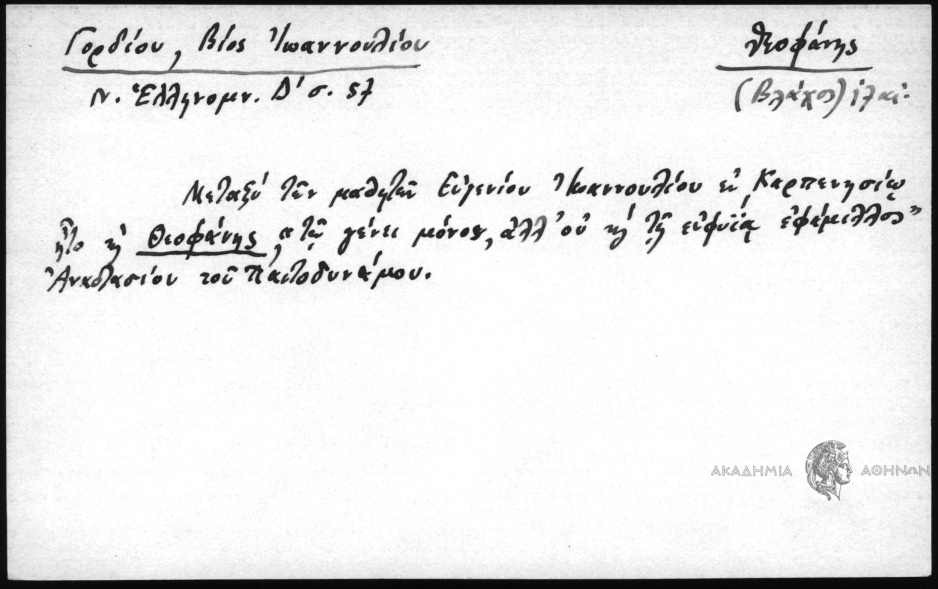 Γορδίου, Βίος Ἰωαννουλίου
Θεοφάνης
Ν. Ἑλληνομν. Δ' σ. 57
(Βλάχος)
Μεταξὺ τῶν μαθητῶν Εὐγενίου Ἰωαννουλίου ἐν Καρπενησίῳ
ἦτο κὴ Θεοφάνης „τῷ γένει μόνον, ἀλλ' οὐ κὴ τῇ εὐφυΐᾳ ἐφάμιλλος"
Ἀναστασίου τοῦ Παντοδυνάμου.
ΑΚΑΔΗΜΙΑ ΑΘΗΝΩΝ